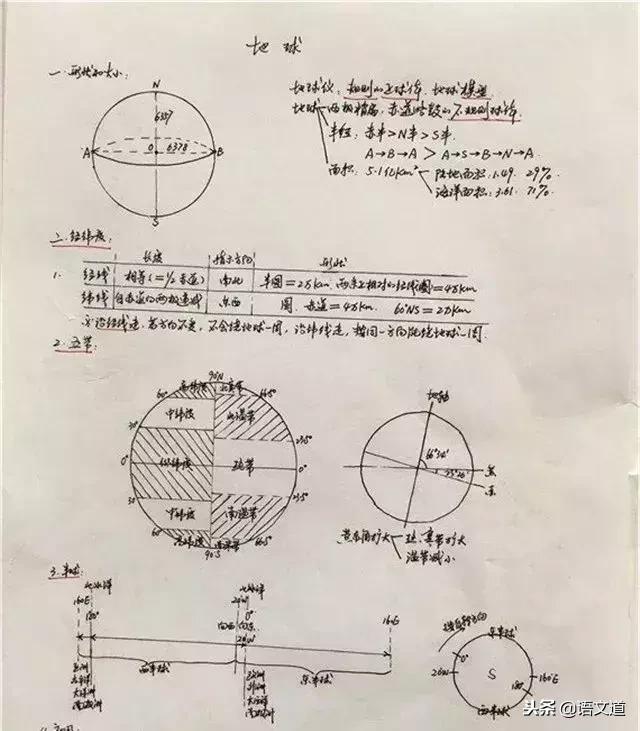 地 球
一. 形状和大小:
N
6357
A
0
6378
B
S
地球仪: 规则的正球体. 地球模型
地球 两极稍扁, 赤道略鼓的不规则球体.
半径: 赤半>N半>S半.
A→B→A > A→S→B→N→A.
面积: 5.1亿km² 陆地面积: 1.49. 29%.
海洋面积: 3.61. 71%.
二. 经纬度:
长度 指示方向 形状
1. 经线 相等(=½赤道) 南北
纬线 自赤道向两极递减 东西 圆. 赤道=4万km. 60°NS=2万km
沿纬线走, 沿同一方向能绕地球一周.
2. 五带:
90°N
60° 高纬度 北寒带 66.5°
中纬度 北温带
30° 23.5°
0° 低纬度 热带 0°
30° 23.5°
中纬度 南温带
60° 高纬度 南寒带 66.5°
90°S
地轴
66°34'
23°26'
黄
赤
黄赤角扩大 热、寒带扩大
温带减小
3. 半球:
北冰洋
160°E
180°
北冰洋
20°W 0°
向西 向东
20°W
160°E
西半球
东半球
亚洲
太平洋
大洋洲
南极洲
非洲
大西洋
南极洲
地球自转方向
东半球
0°
20°W
S
160°E
180°
西半球
头条 @语文道